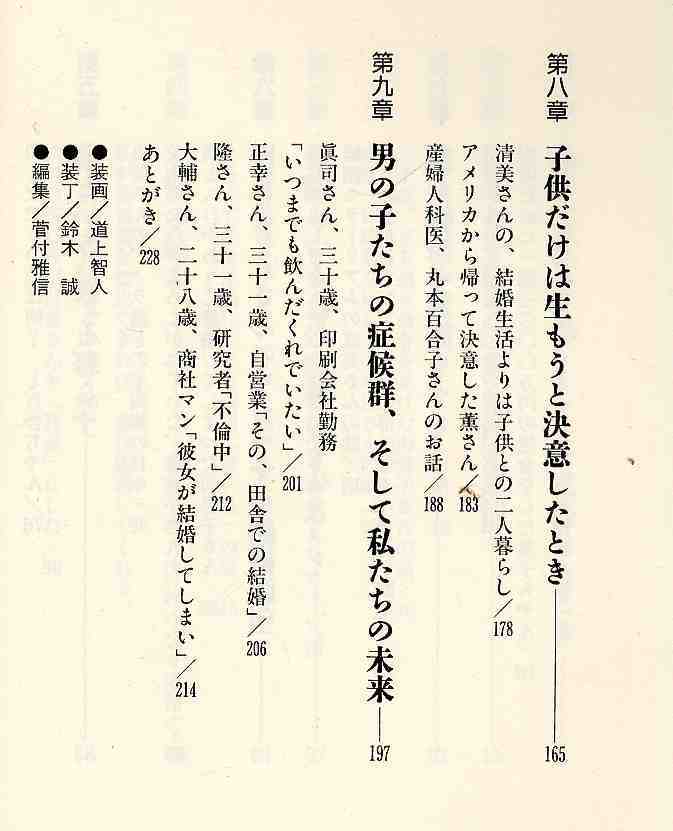 第八章 子供だけは生もうと決意したとき——165
清美さんの、結婚生活よりは子供との二人暮らし／178
アメリカから帰って決意した薫さん／183
産婦人科医、丸本百合子さんのお話／188
第九章 男の子たちの症候群、そして私たちの未来——197
眞司さん、三十歳、印刷会社勤務
「いつまでも飲んだくれでいたい」／201
正幸さん、三十一歳、自営業「その、田舎での結婚」／206
隆さん、三十一歳、研究者「不倫中」／212
大輔さん、二十八歳、商社マン「彼女が結婚してしまい」／214
あとがき／228
●装画／道上智人
●装丁／鈴木 誠
●編集／菅付雅信